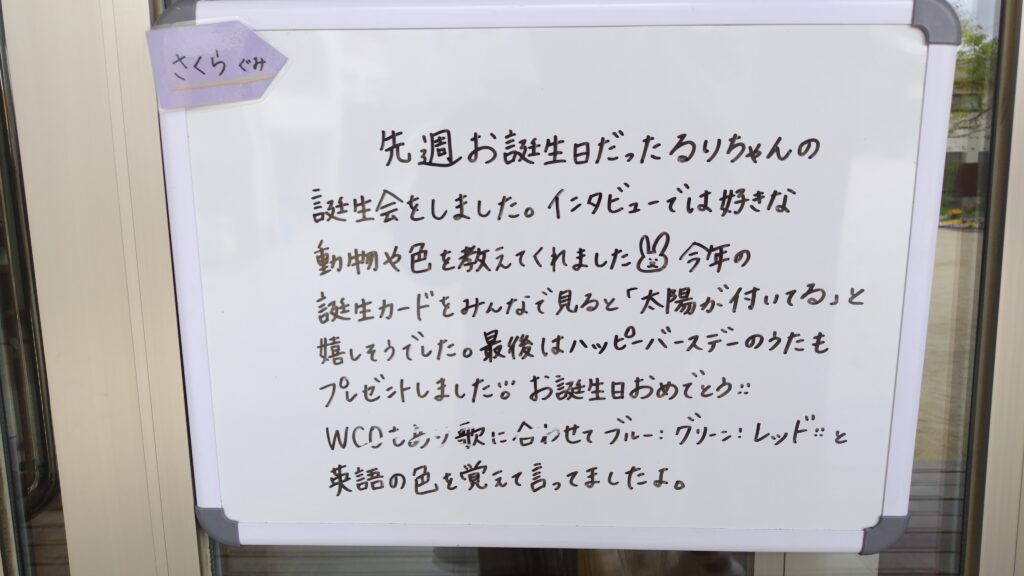 さくら ぐみ
先週お誕生日だったるりちゃんの
誕生会をしました。インタビューでは好きな
動物や色を教えてくれました 今年の
誕生カードをみんなで見ると「太陽が付いてる」と
嬉しそうでした。最後はハッピーバースデーのうたも
プレゼントしました!! お誕生日おめでとう!!
WCDもあり歌に合わせてブルー!グリーン!レッド!!と
英語の色を覚えて言ってましたよ。